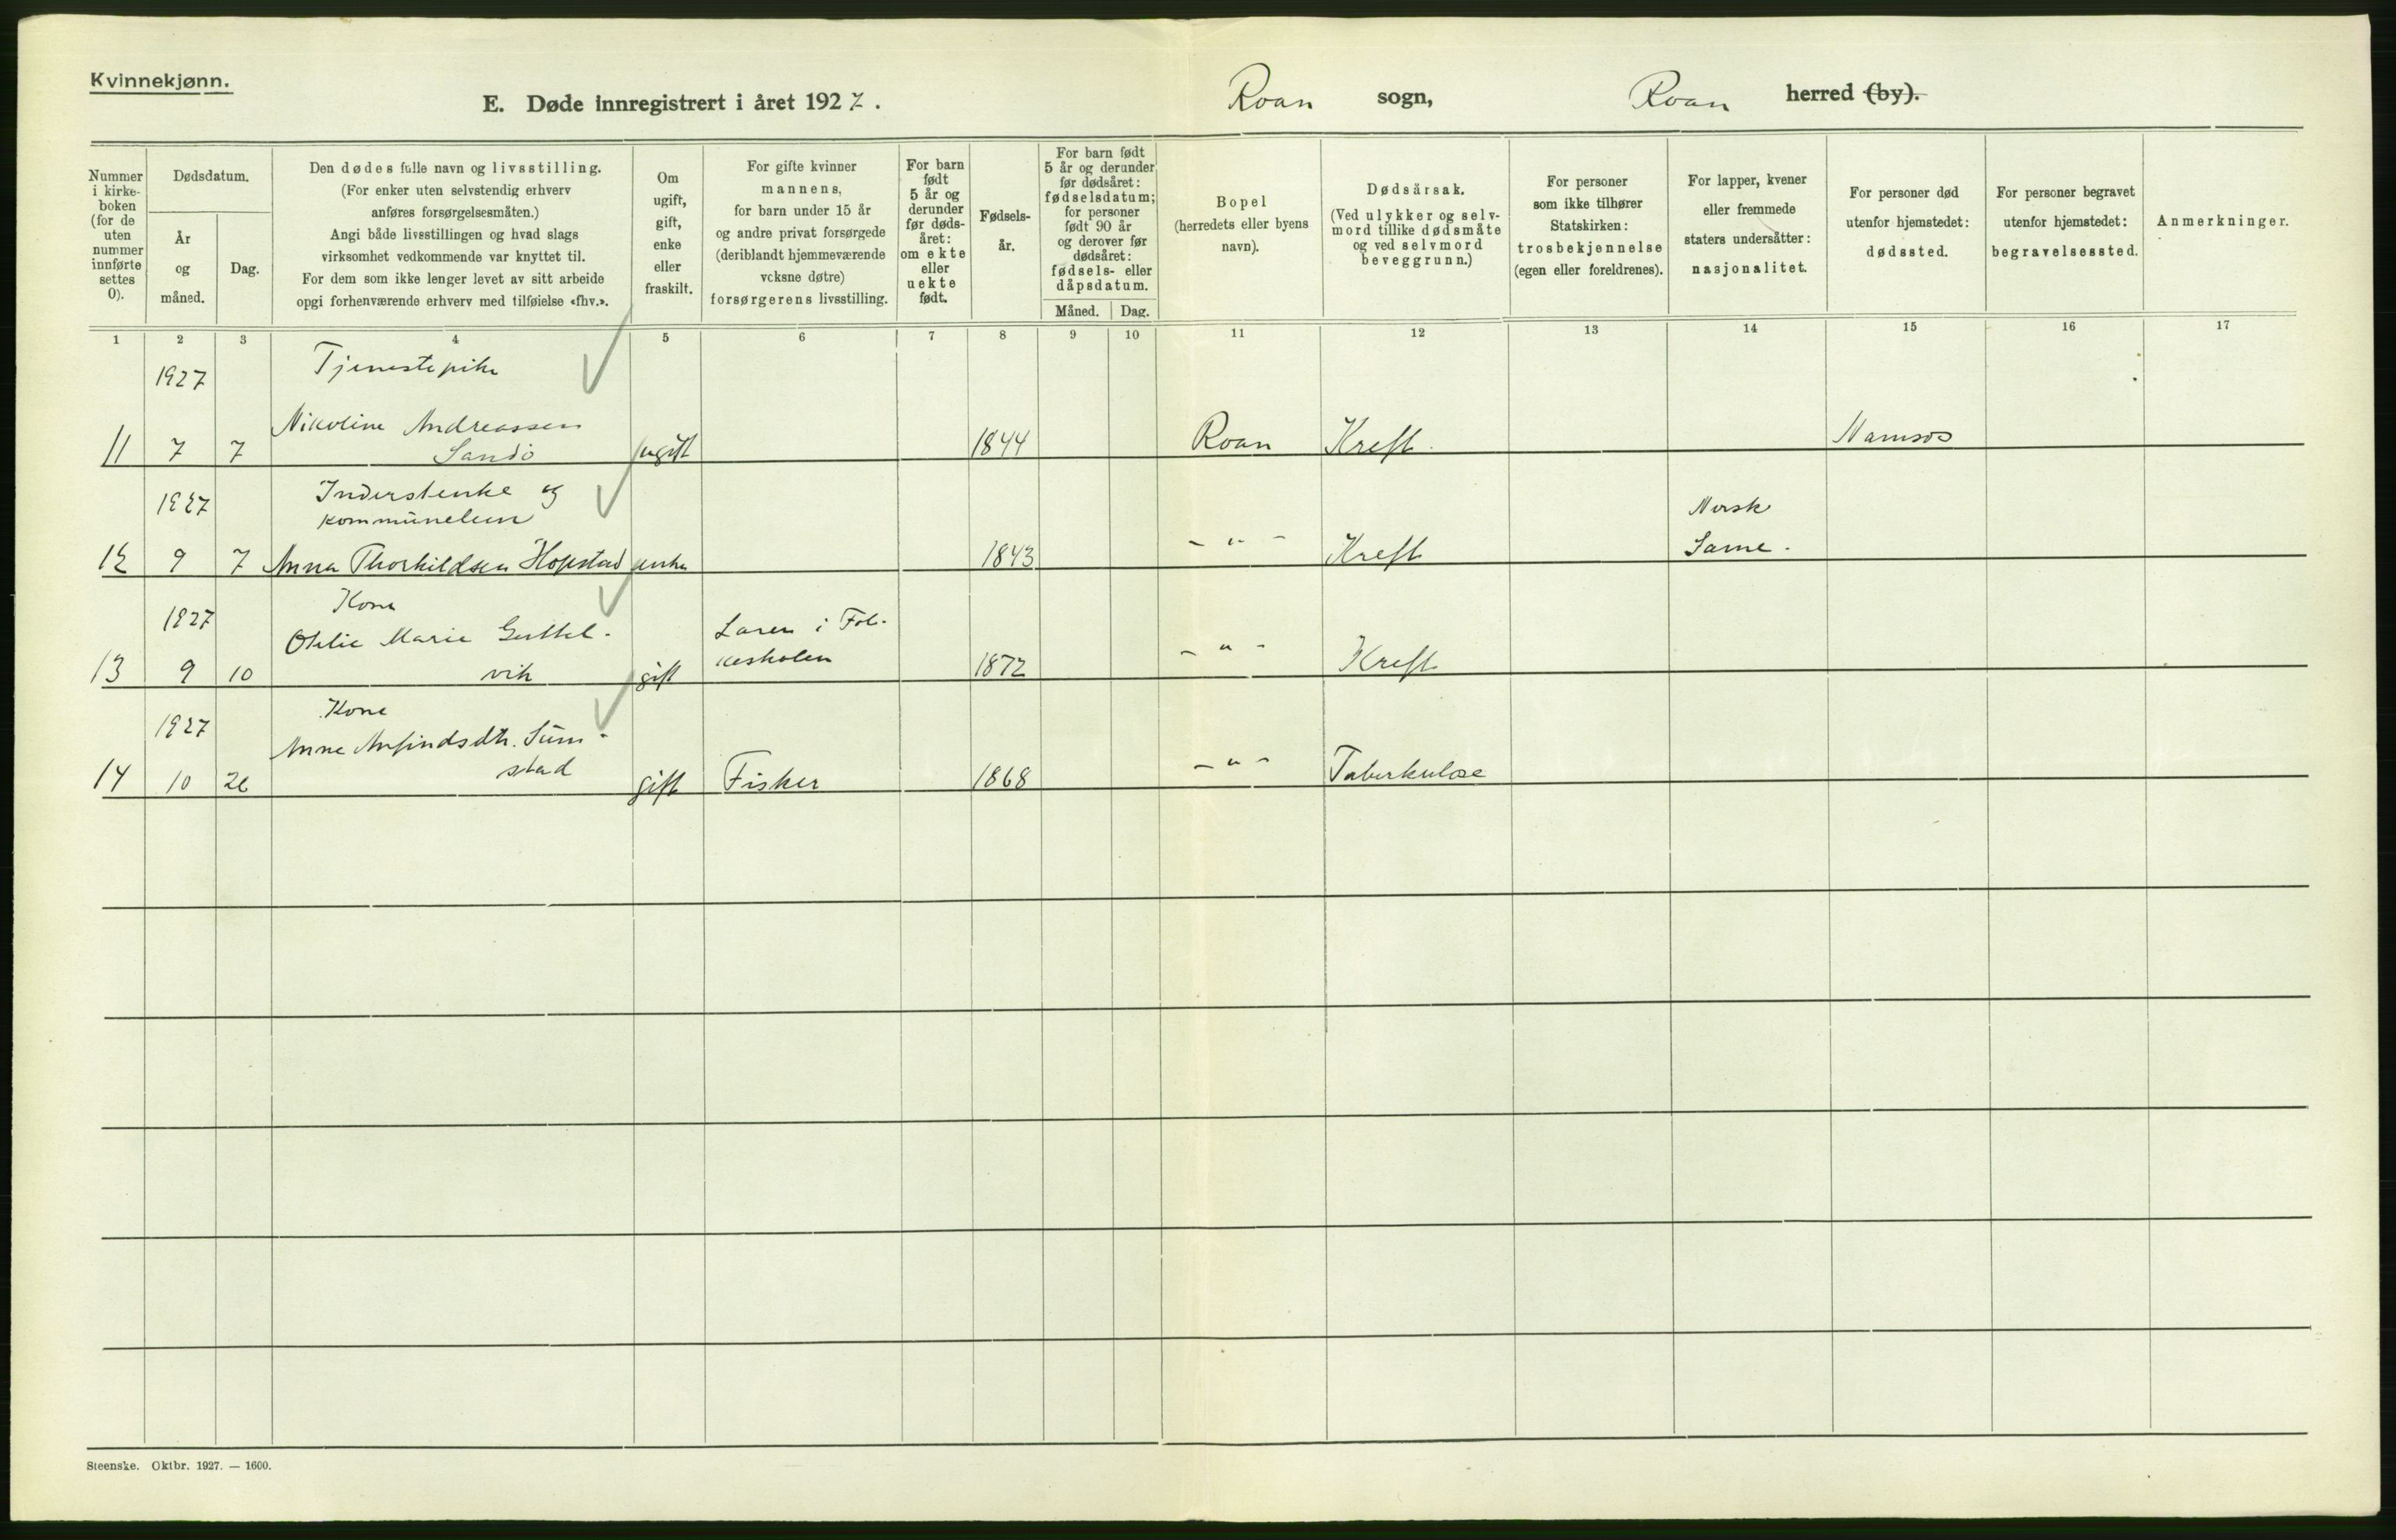 Kvinnekjønn.
E. Døde innregistrert i året 1927. Roan sogn, Roan herred (by).
Nummer i kirke-boken (for de uten nummer innførte settes 0).
Dødsdatum.
År og måned.
Dag.
Den dødes fulle navn og livsstilling.
(For enker uten selvstendig erhverv
anføres forsørgelsesmåten.)
Angi både livsstillingen og hvad slags
virksomhet vedkommende var knyttet til.
For dem som ikke lenger levet av sitt arbeide
opgi forhenværende erhverv med tilføielse «fhv.».
Om
ugift,
gift,
enke
eller
fraskilt.
For gifte kvinner
mannens,
for barn under 15 år
og andre privat forsørgede
(deriblandt hjemmeværende
vcksne døtre)
forsørgerens livsstilling.
For barn
født
5 år og
derunder
før døds-
året:
om ekte
eller
uekte
født.
Fødsels-
år.
For barn født
5 år og derunder
før dødsåret:
fødselsdatum;
for personer
født 90 år
og derover før
dødsåret:
fødsels- eller
dåpsdatum.
Måned. Dag.
Bopel
(herredets eller byens
navn).
Dødsårsak.
(Ved ulykker og selv-
mord tillike dødsmåte
og ved selvmord
beveggrunn.)
For personer
som ikke tilhører
Statskirken:
trosbekjennelse
(egen eller foreldrenes).
For lapper, kvener
eller fremmede
staters undersåtter:
nasjonalitet.
For personer død
utenfor hjemstedet:
dødssted.
For personer begravet
utenfor hjemstedet:
begravelsessted.
Anmerkninger.
1 2 3 4 5 6 7 8 9 10 11 12 13 14 15 16 17
1927 Tjenestepike
Nikoline Andreassen
11 7 7 Sandö ugift 1844 Roan Kreft. Namsos
1927 Inderstenke og Norsk
kommunelem
12 9 7 Anna Thorkildsen Hopstad enke 1843 - " - Kreft Same.
1927 Kone
Otelie Marie Guttel- Lærer i Fol-
13 9 10 vik gift keskolen 1872 - " - Kreft
1927 Kone
Anne Arfindsdtr. Sum-
14 10 26 stad gift Fisker 1868 - " - Tuberkulose
Steenske. Oktbr. 1927. — 1600.